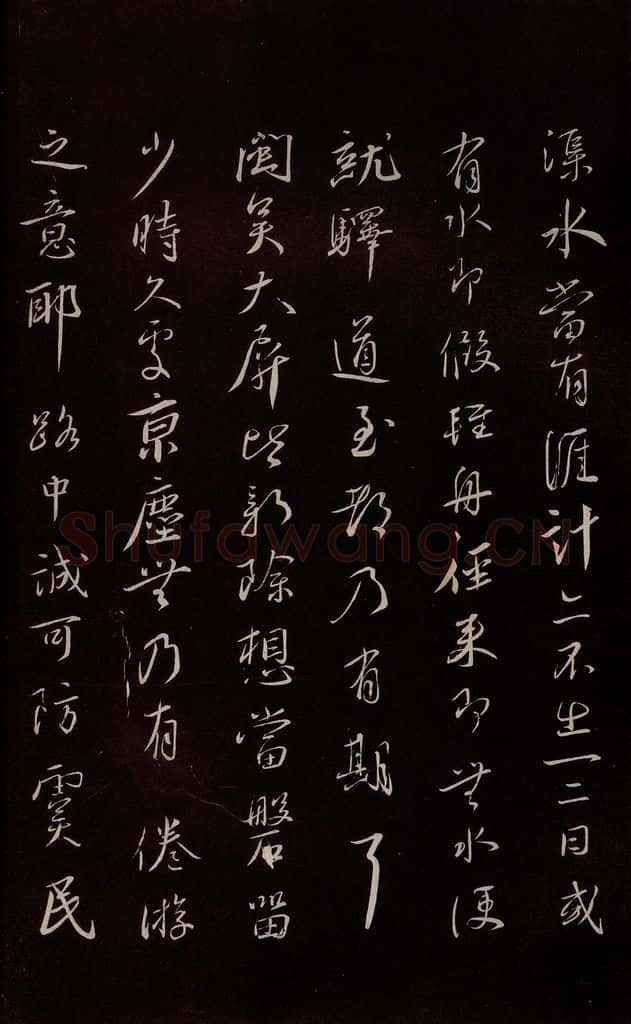 渠水當有涯計亦不出一二日或
有水即假輕舟徑来即無水便
就驛道至都乃有期了
閩大屏除想當磐留
少時久京塵無乃有倦游
之意耶路中誠可防民
Shufawang.CN